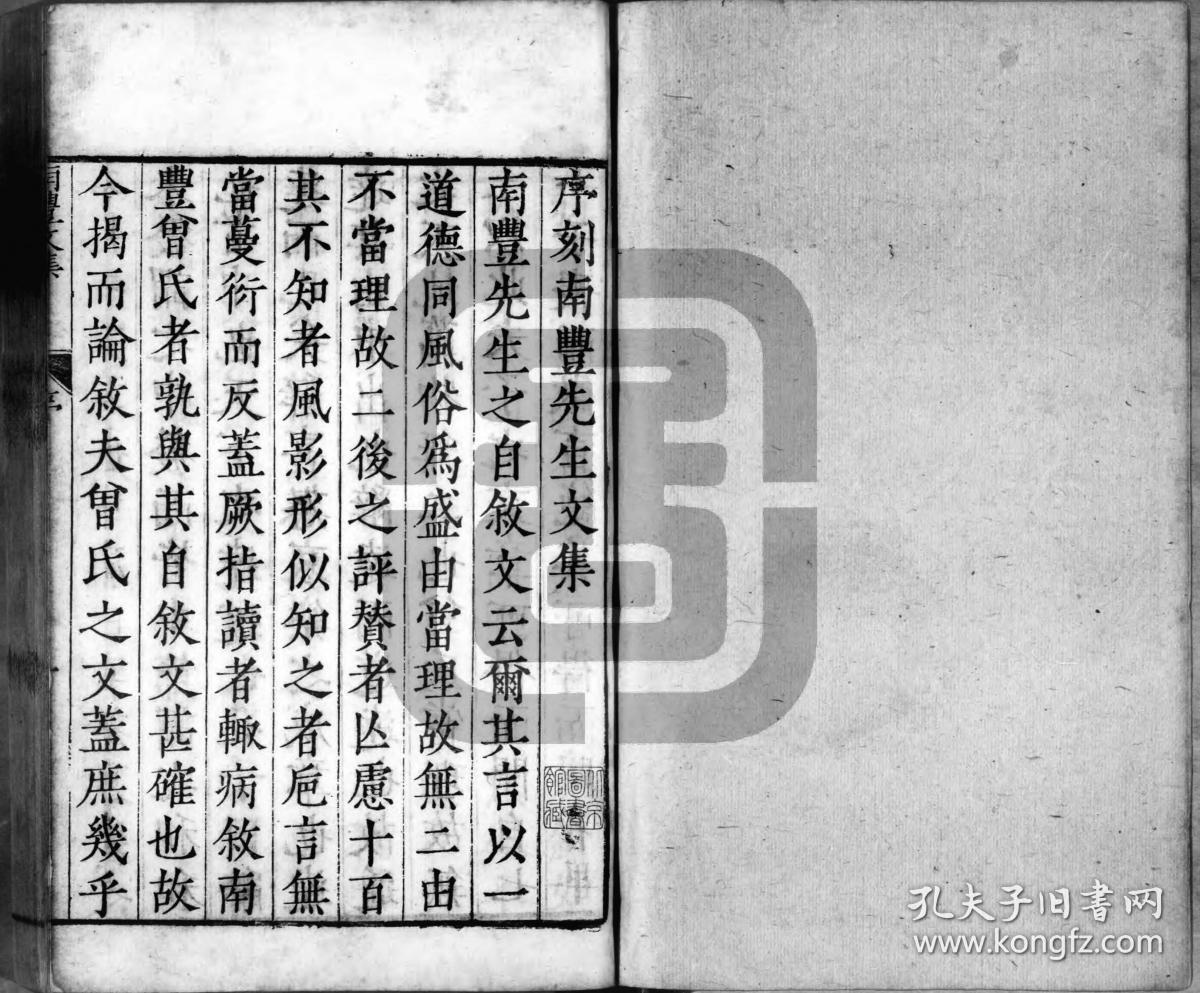 序刻南豐先生文集
南豐先生之自敘文云爾其言以一
道德同風俗爲盛由當理故無二由
不當理故二後之評贊者亾慮十百
其不知者風影形似知之者巵言無
當蔓衍而反蓋厥指讀者輙病敘南
豐曾氏者孰與其自敘文甚確也故
今揭而論敘夫曾氏之文蓋庶幾乎
南豐文集
序
北京
圖書
館藏
孔夫子旧书网
www.kongfz.com